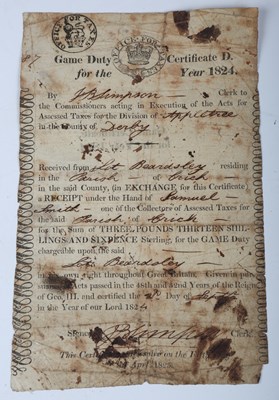 OFFICE FOR TAXES
OFFICE FOR TAXES
Game Duty Certificate D.
for the Year 1824.
By J B Simpson Clerk to
the Commissioners acting in Execution of the Acts for
Assessed Taxes for the Division of Appletree
in the County of Derby
Received from Jno Beardsley residing
in the Parish of Crich
in the said County, (in EXCHANGE for this Certificate)
a RECEIPT under the Hand of Samuel
Smith one of the Collectors of Assessed Taxes for
the said Parish of Crich
for the Sum of THREE POUNDS THIRTEEN SHIL-
LINGS AND SIXPENCE Sterling, for the GAME Duty
chargeable upon the said
Beardsley
own right throughout Great Britain. Given in pur-
suance of Acts passed in the 48th and 52nd Years of the Reign
of Geo. III. and entitled the Day of Sept
in the Year of our Lord 1824
Signed Simpson Clerk.
This Certificate expires on the
April 1825.